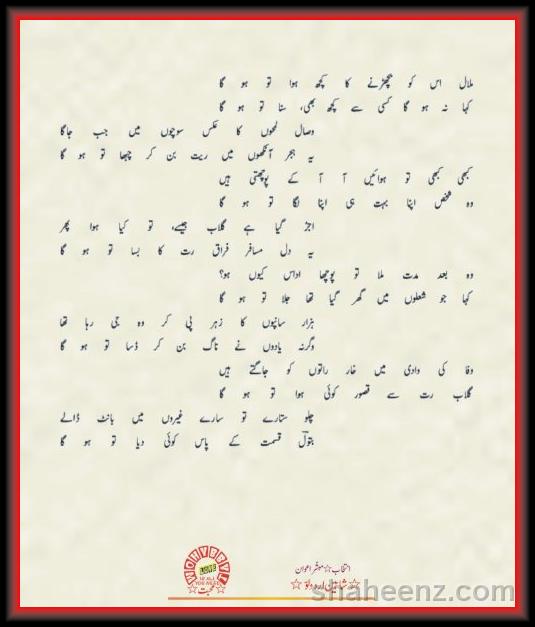 ملال اس کو بچھڑنے کا کچھ ہوا تو ہو گا
کہا نہ ہو گا کسی سے کچھ بھی، سنا تو ہو گا
وصال لمحوں کا عکس سوچوں میں جب جاگا
یہ ہجر آنکھوں میں ریت بن کر چبھا تو ہو گا
کبھی کبھی تو ہوائیں آ آ کے پوچھتی ہیں
وہ شخص اپنا بہت ہی اپنا لگا تو ہو گا
اجڑ گیا ہے گلاب جیسے، تو کیا ہوا پھر
یہ دل مسافر فراق رت کا بسا تو ہو گا
وہ بعد مدت ملا تو پوچھا اداس کیوں ہو؟
کہا جو شعلوں میں گھر گیا تھا جلا تو ہو گا
ہزار سانپوں کا زہر پی کر وہ جی رہا تھا
وگرنہ یادوں نے ناگ بن کر ڈسا تو ہو گا
وفا کی وادی میں خار راتوں کو جاگتے ہیں
گلاب رت سے قصور کوئی ہوا تو ہو گا
چلو ستارے تو سارے غیروں میں بانٹ ڈالے
بتولؔ قسمت کے پاس کوئی دیا تو ہو گا
LOVE
IS ALL
YOU NEED
☆محبت☆
انتخاب☆ اعوان
☆شاہین اردو☆
shaheenz.com